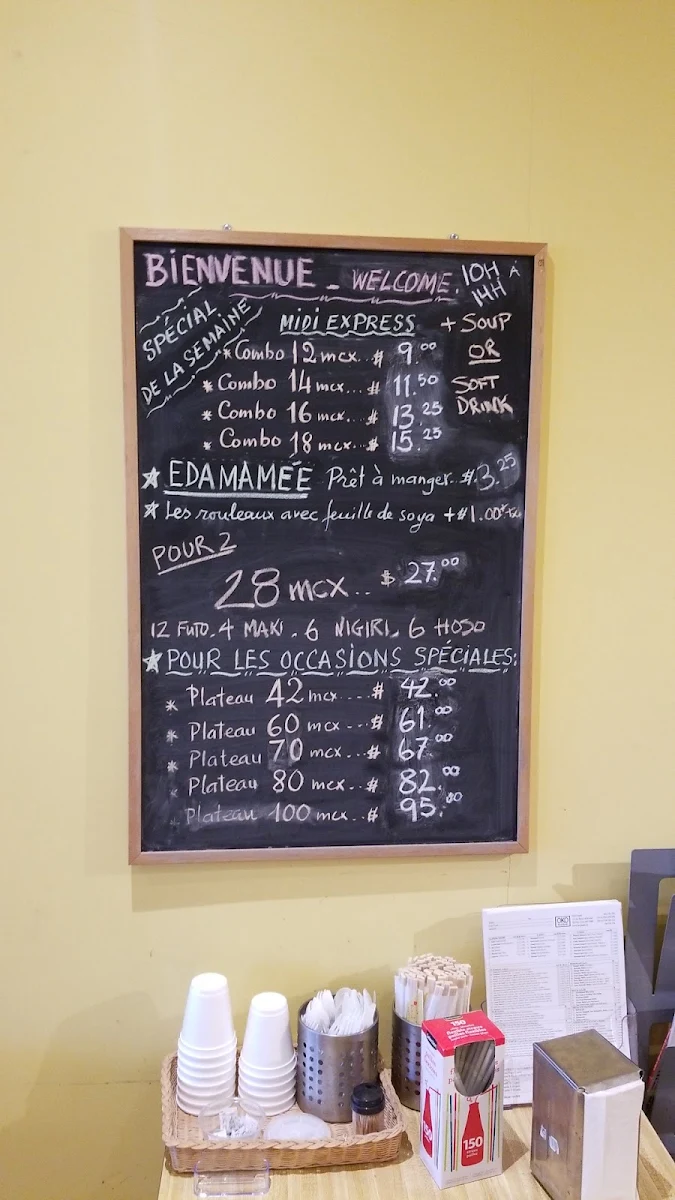 BIENVENUE - WELCOME.
10H À 14H
SPÉCIAL
DE LA SEMAINE
MIDI EXPRESS
+ SOUP
OR
SOFT
DRINK
* Combo 12 mcx.. $ 9.00
* Combo 14 mcx... $ 11.50
* Combo 16 mcx... $ 13.25
* Combo 18 mcx... $ 15.25
★ EDAMAMÉE Prêt à manger. $.3.25
★ Les rouleaux avec feuille de soya + $1.00+Tx
POUR 2
28 mcx.. $ 27.00
12 FUTO. 4 MAKI . 6 NIGIRI. 6 HOSO
★ POUR LES OCCASIONS SPÉCIALES:
* Plateau 42 mcx....$ 42.00
* Plateau 60 mcx ...$ 61.00
* Plateau 70 mcx...$ 67.00
* Plateau 80 mcx...$ 82.00
Plateau 100 mcx...$ 95.80
OKO
150
150
150